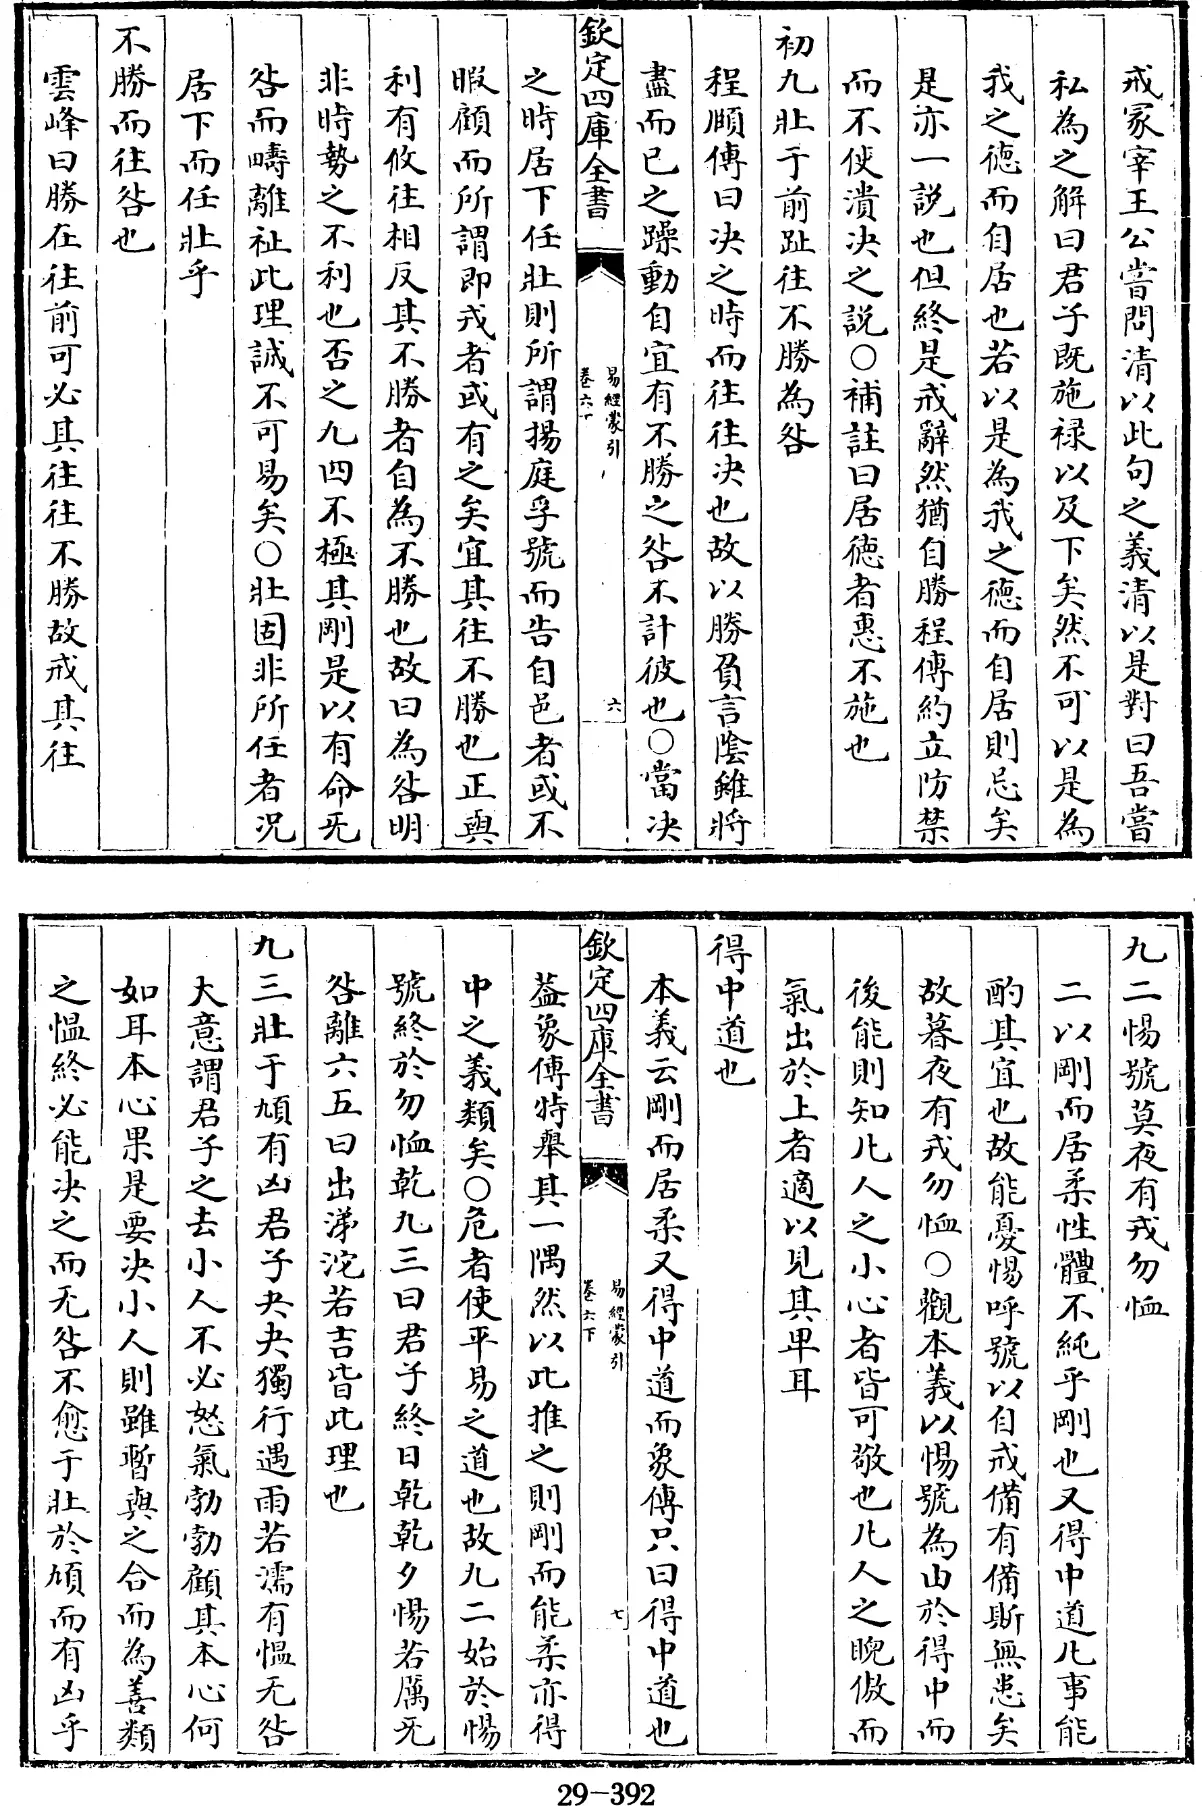 戒冢宰王公嘗問清以此句之義清以是對曰吾嘗
私為之解曰君子既施禄以及下矣然不可以是為
我之徳而自居也若以是為我之徳而自居則忌矣
是亦一說也但終是戒辭然猶自勝程傳約立防禁
而不使潰决之說○補註曰居徳者惠不施也
初九壯于前趾往不勝為咎
程頤傳曰决之時而往往决也故以勝負言陰雖將
盡而已之躁動自宜有不勝之咎不計彼也○當决
欽定四庫全書
易經蒙引
卷六下
六
之時居下任壯則所謂揚庭孚號而告自邑者或不
暇顧而所謂即戎者或有之矣宜其往不勝也正與
利有攸往相反其不勝者自為不勝也故曰為咎明
非時勢之不利也否之九四不極其剛是以有命无
咎而疇離祉此理誠不可易矣○壯固非所任者况
居下而任壯乎
不勝而往咎也
雲峰曰勝在往前可必其往往不勝故戒其往
九二惕號莫夜有戎勿恤
二以剛而居柔性體不純乎剛也又得中道凡事能
酌其宜也故能憂惕呼號以自戒備有備斯無患矣
故暮夜有戎勿恤○觀本義以惕號為由於得中而
後能則知凡人之小心者皆可敬也凡人之睨傲而
氣出於上者適以見其卑耳
得中道也
本義云剛而居柔又得中道而象傳只曰得中道也
欽定四庫全書
易經蒙引
卷六下
七
葢象傳特舉其一隅然以此推之則剛而能柔亦得
中之義類矣○危者使平易之道也故九二始於惕
號終於勿恤乾九三曰君子終日乾乾夕惕若厲无
咎離六五曰出涕沱若吉皆此理也
九三壯于頄有凶君子夬夬獨行遇雨若濡有慍无咎
大意謂君子之去小人不必怒氣勃勃顧其本心何
如耳本心果是要决小人則雖暫與之合而為善類
之慍終必能决之而无咎不愈于壯於頄而有凶乎
29-392